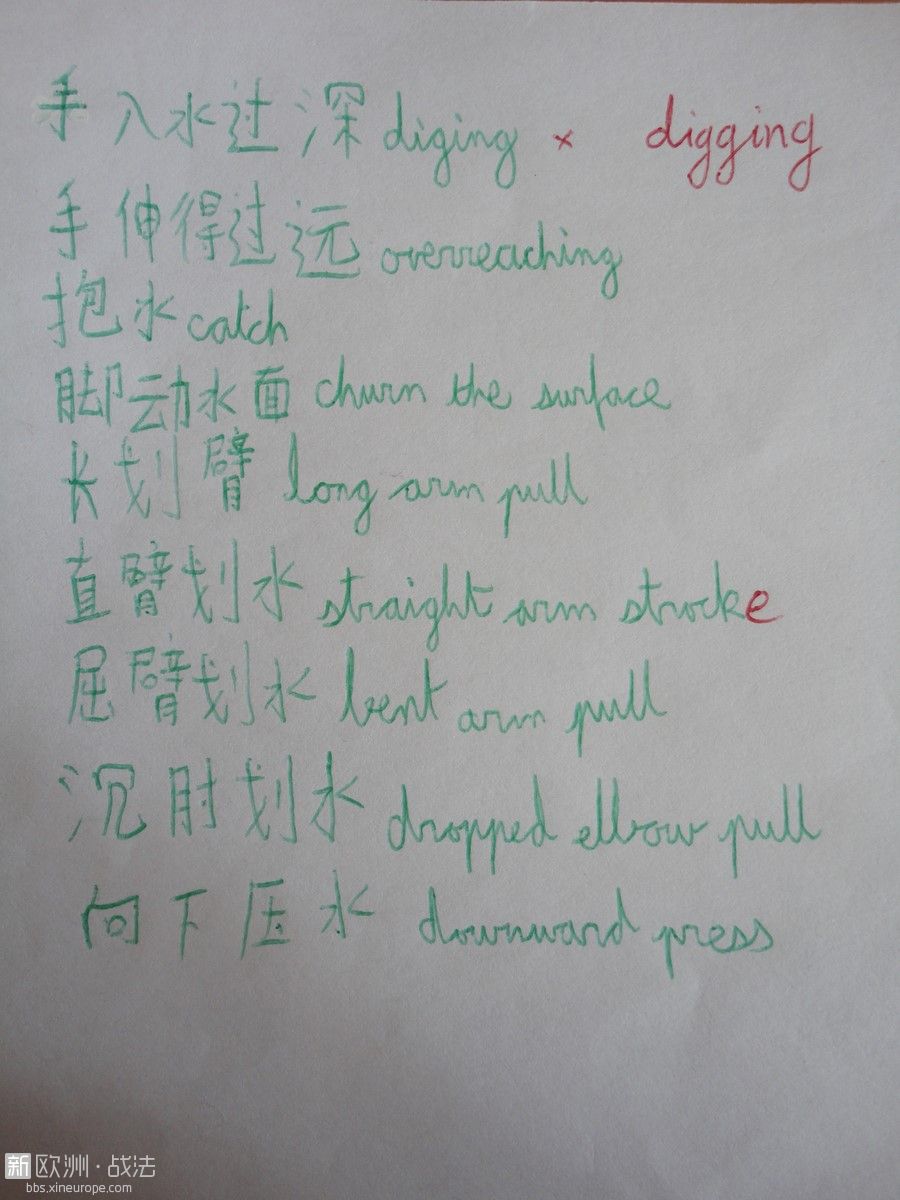 手入水过深 diging × digging
手伸得过远 overreaching
抱水 catch
脚动水面 churn the surface
长划臂 long arm pull
直臂划水 straight arm strocke
屈臂划水 bent arm pull
沉肘划水 dropped elbow pull
向下压水 downward press
新欧洲·战法
bbs.xineurope.com